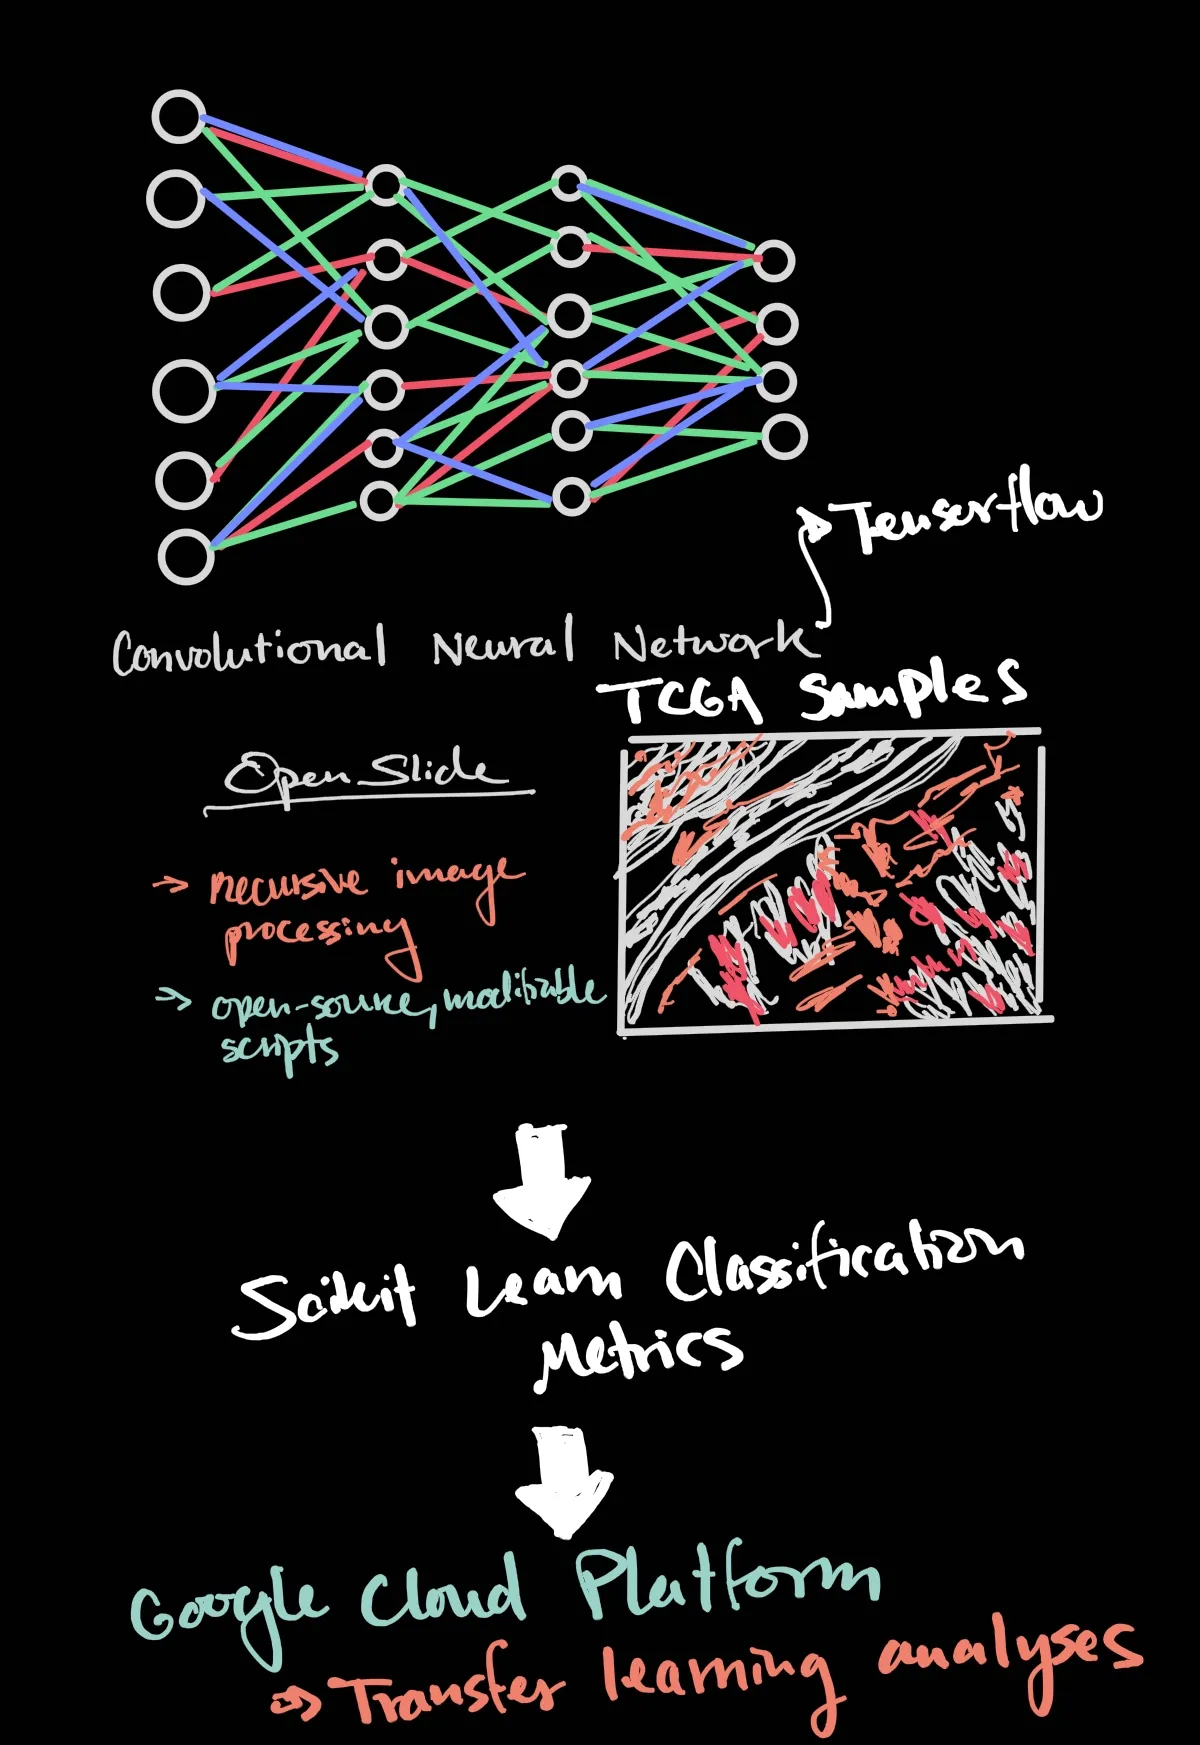 Tensorflow
Convolutional Neural Network
TCGA Samples
OpenSlide
→ recursive image
processing
→ open-source, modifiable
scripts
Scikit Learn Classification
Metrics
Google Cloud Platform
⇒ Transfer learning analyses